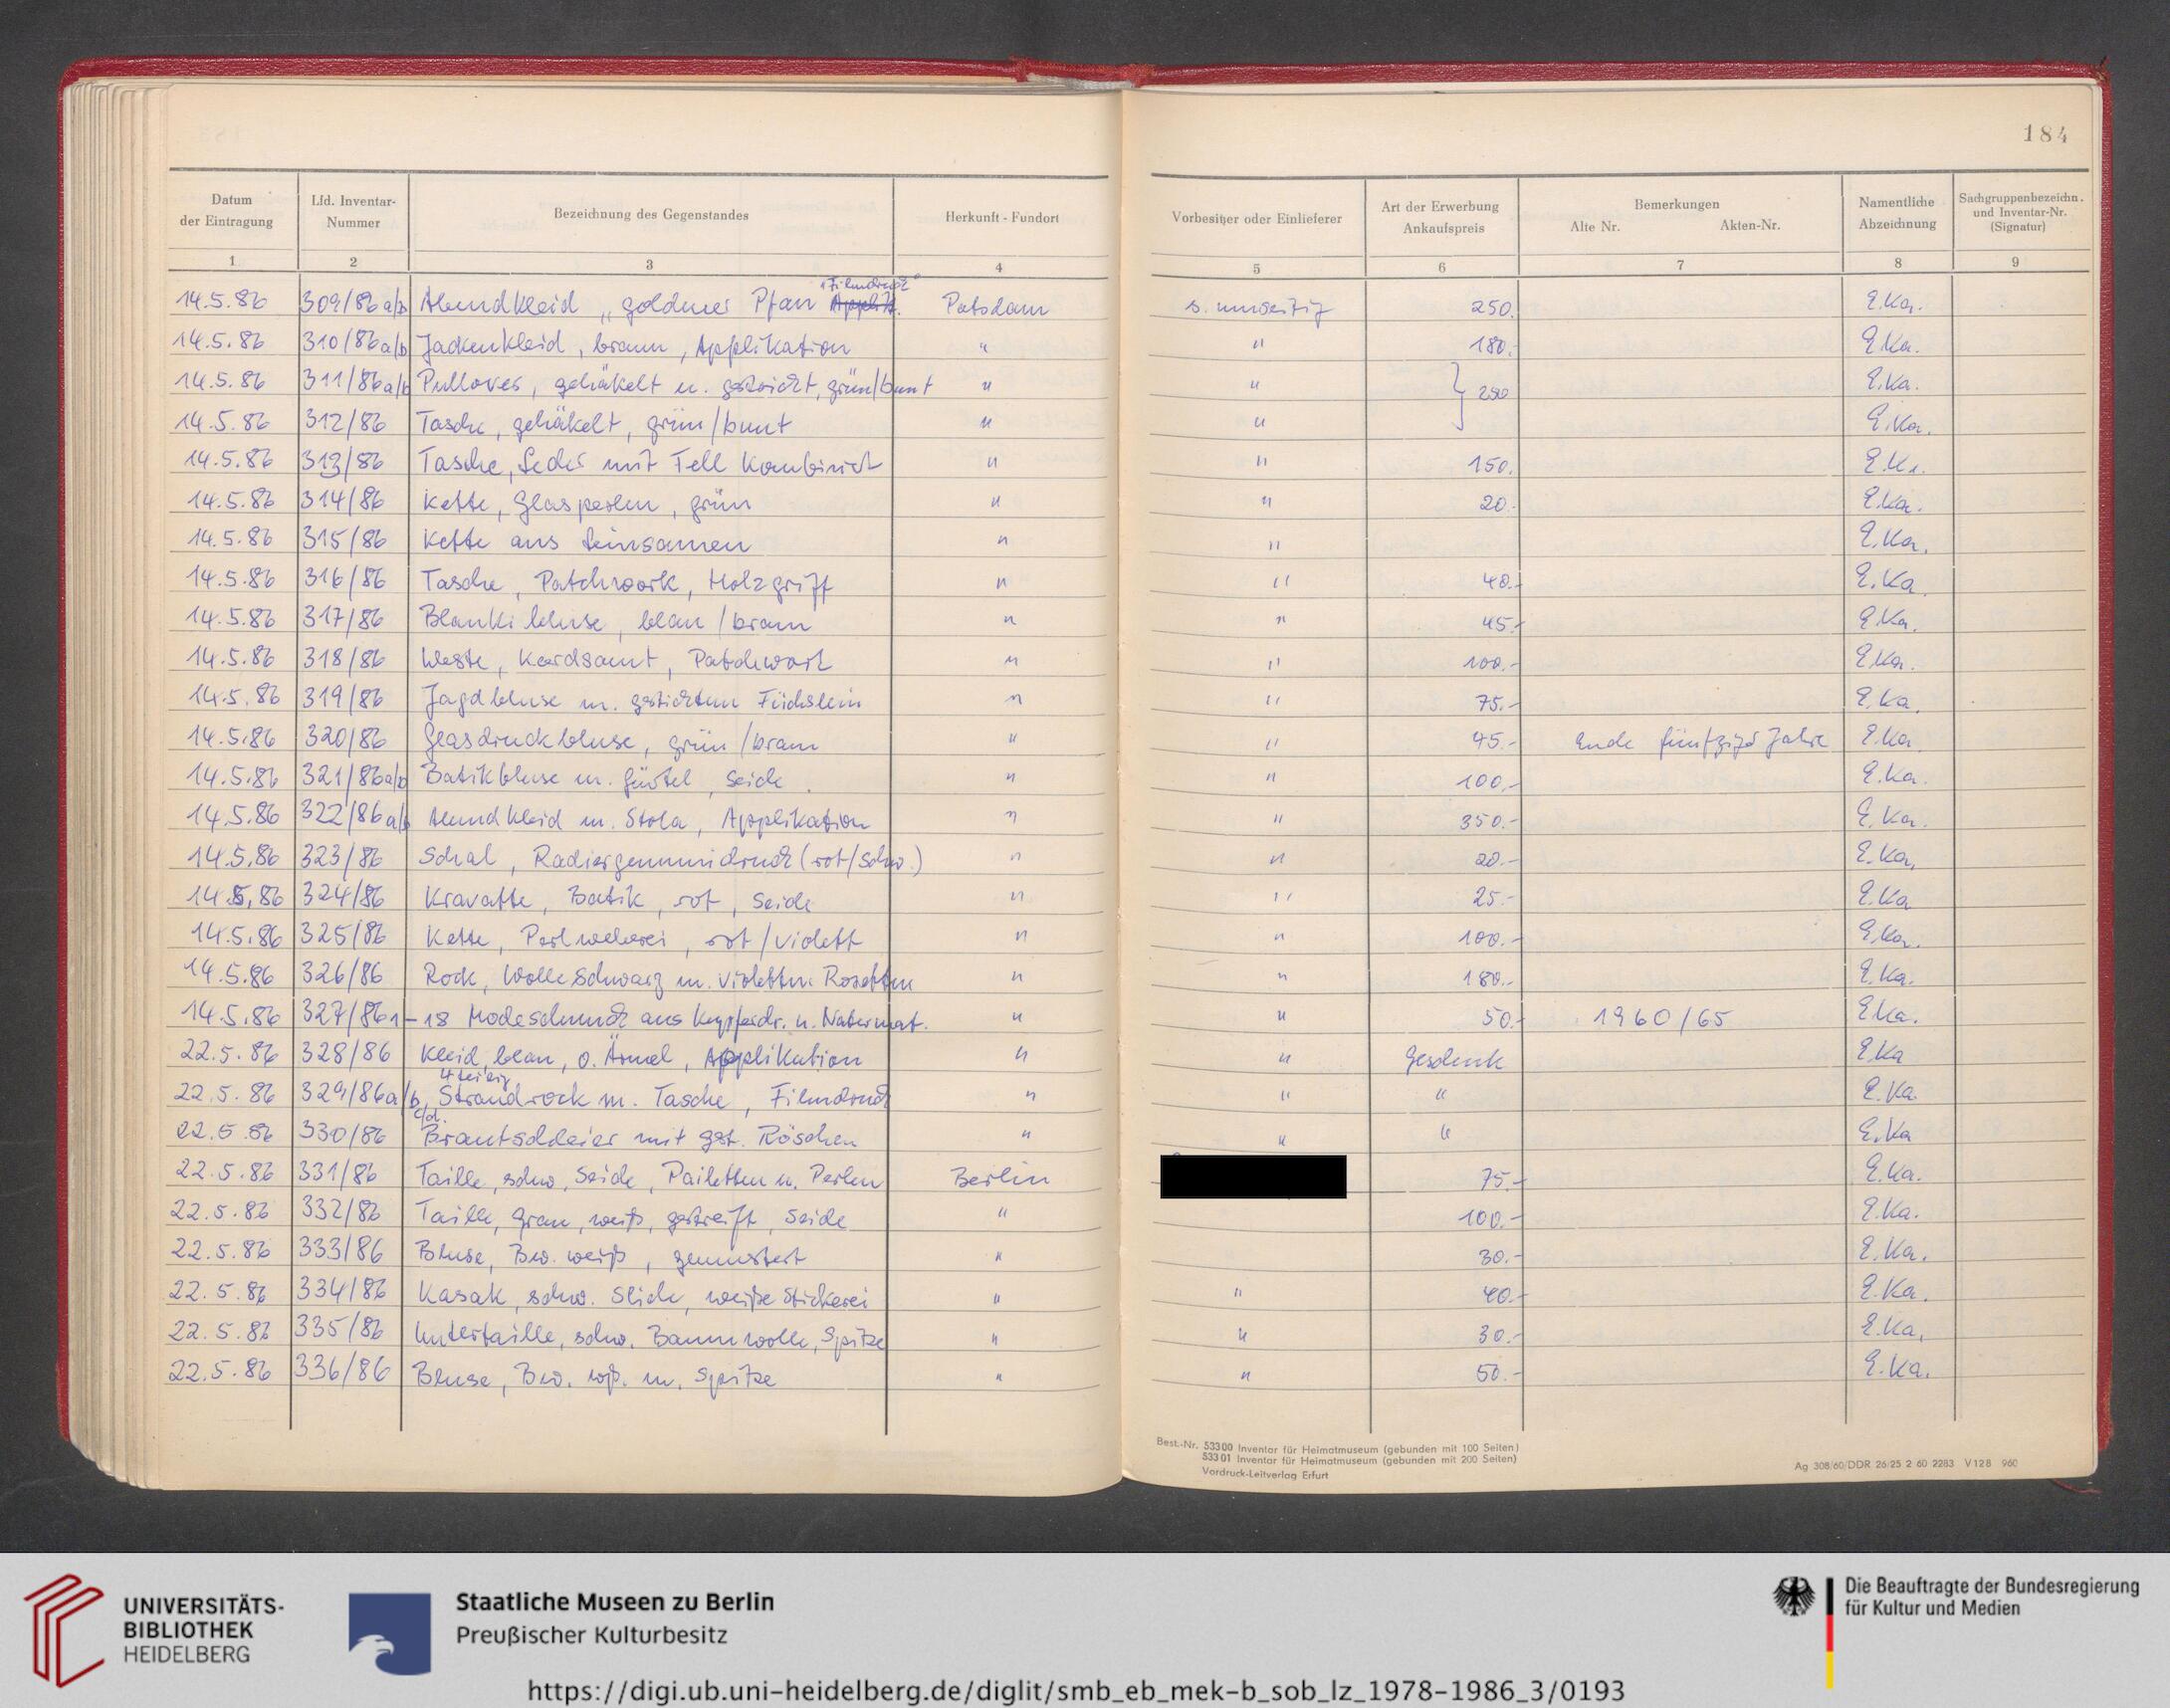 184
Datum der Eintragung | Lfd. Inventar-Nummer | Bezeichnung des Gegenstandes | Herkunft - Fundort | Vorbesitzer oder Einlieferer | Art der Erwerbung Ankaufspreis | Bemerkungen Alte Nr. Akten-Nr. | Namentliche Abzeichnung | Sachgruppenbezeichn. und Inventar-Nr. (Signatur)
1 | 2 | 3 | 4 | 5 | 6 | 7 | 8 | 9
14.5.86 | 309/86 a/b | Abendkleid „goldner Pfau" Filmdruck | Potsdam | s. umseitig | 250. | E.Ka.
14.5.86 | 310/86 a/b | Jackenkleid, braun, Applikation | " | " | 180.- | E.Ka.
14.5.86 | 311/86 a/b | Pullover, gehäkelt u. gestrickt, grün/bunt | " | " | } 250 | E.Ka.
14.5.86 | 312/86 | Tasche, gehäkelt, grün/bunt | " | " | E.Ka.
14.5.86 | 313/86 | Tasche, Leder mit Fell kombiniert | " | " | 150. | E.Ka.
14.5.86 | 314/86 | Kette, Glasperlen, grün | " | " | 20.- | E.Ka.
14.5.86 | 315/86 | Kette aus Leinsamen | " | " | E.Ka.
14.5.86 | 316/86 | Tasche, Patchwork, Holzgriff | " | " | 40.- | E.Ka.
14.5.86 | 317/86 | bluse, blau/braun | " | " | 45.- | E.Ka.
14.5.86 | 318/86 | Weste, Kordsamt, Patchwork | " | " | 100.- | E.Ka.
14.5.86 | 319/86 | Jagdbluse m. gestickten Füchslein | " | " | 75.- | E.Ka.
14.5.86 | 320/86 | Glasdruckbluse, grün/braun | " | " | 45.- | Ende fünfziger Jahre | E.Ka.
14.5.86 | 321/86 a/b | Batikbluse m. Gürtel, Seide. | " | " | 100.- | E.Ka.
14.5.86 | 322/86 a/b | Abendkleid m. Stola, Applikation | " | " | 350.- | E.Ka.
14.5.86 | 323/86 | Schal, Radiergummidruck (rot/schw.) | " | " | 20.- | E.Ka.
14.5.86 | 324/86 | Kravatte, Batik, rot, Seide | " | " | 25.- | E.Ka
14.5.86 | 325/86 | Kette, Perlweberei, rot/violett | " | " | 100.- | E.Ka.
14.5.86 | 326/86 | Rock, Wolle schwarz m. violetten Rosetten | " | " | 180.- | E.Ka.
14.5.86 | 327/86 1-18 | Modeschmuck aus Kupferdr. u. Naturmat. | " | " | 50.- | 1960/65 | E.Ka.
22.5.86 | 328/86 | Kleid, blau, o. Ärmel, Applikation | " | " | Geschenk | E.Ka
22.5.86 | 329/86 a/b, c/d. | 4teilig Strandrock m. Tasche, Filmdruck | " | " | " | E.Ka.
22.5.86 | 330/86 | Brautschleier mit gest. Röschen | " | " | " | E.Ka
22.5.86 | 331/86 | Taille, schw. Seide, Pailetten u. Perlen | Berlin | 75.- | E.Ka.
22.5.86 | 332/86 | Taille, grau, weiß, gestreift, Seide | " | 100.- | E.Ka.
22.5.86 | 333/86 | Bluse, Bw. weiß, gemustert | " | 30.- | E.Ka.
22.5.86 | 334/86 | Kasak, schw. Seide, weiße Stickerei | " | " | 40.- | E.Ka.
22.5.86 | 335/86 | Untertaille, schw. Baumwolle, Spitze | " | " | 30.- | E.Ka.
22.5.86 | 336/86 | Bluse, Bw. wß. m. Spitze | " | " | 50.- | E.Ka.
Best.-Nr. 53300 Inventar für Heimatmuseum (gebunden mit 100 Seiten)
53301 Inventar für Heimatmuseum (gebunden mit 200 Seiten)
Vordruck-Leitverlag Erfurt
Ag 308/60/DDR 26/25 2 60 2283 V128 960
UNIVERSITÄTS-
BIBLIOTHEK
HEIDELBERG
Staatliche Museen zu Berlin
Preußischer Kulturbesitz
Die Beauftragte der Bundesregierung
für Kultur und Medien
https://digi.ub.uni-heidelberg.de/diglit/smb_eb_mek-b_sob_lz_1978-1986_3/0193